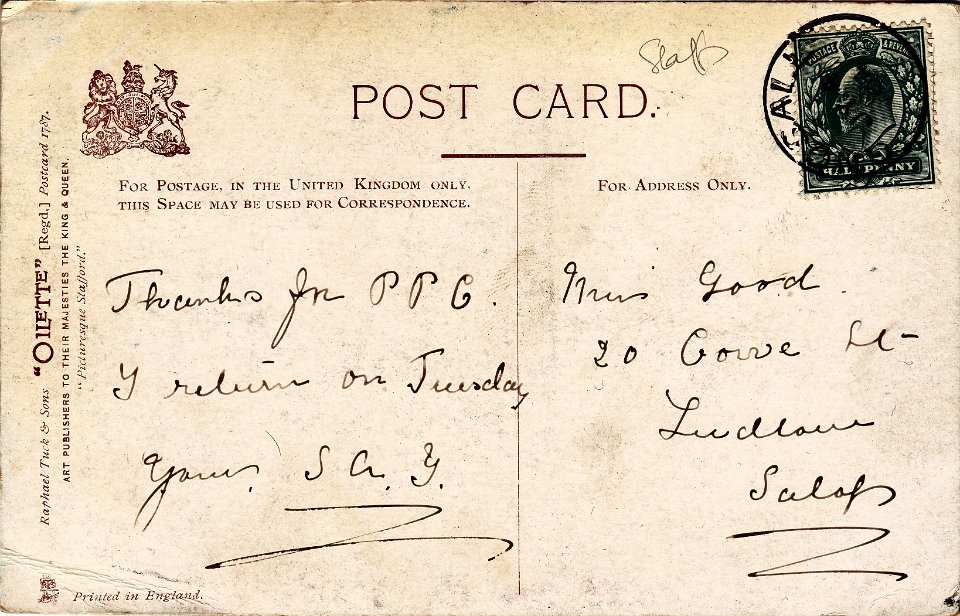 Staffs
POST CARD.
FOR POSTAGE, IN THE UNITED KINGDOM ONLY,
THIS SPACE MAY BE USED FOR CORRESPONDENCE.
FOR ADDRESS ONLY.
POSTAGE & REVENUE
HALFPENNY
Raphael Tuck & Sons "OILETTE" [Regd.] Postcard 1787.
ART PUBLISHERS TO THEIR MAJESTIES THE KING & QUEEN.
"Picturesque Stafford."
Thanks for P P C.
I return on Tuesday
Yours, S A. Y.
Miss Good
20 Corve St
Ludlow
Salop
Printed in England.